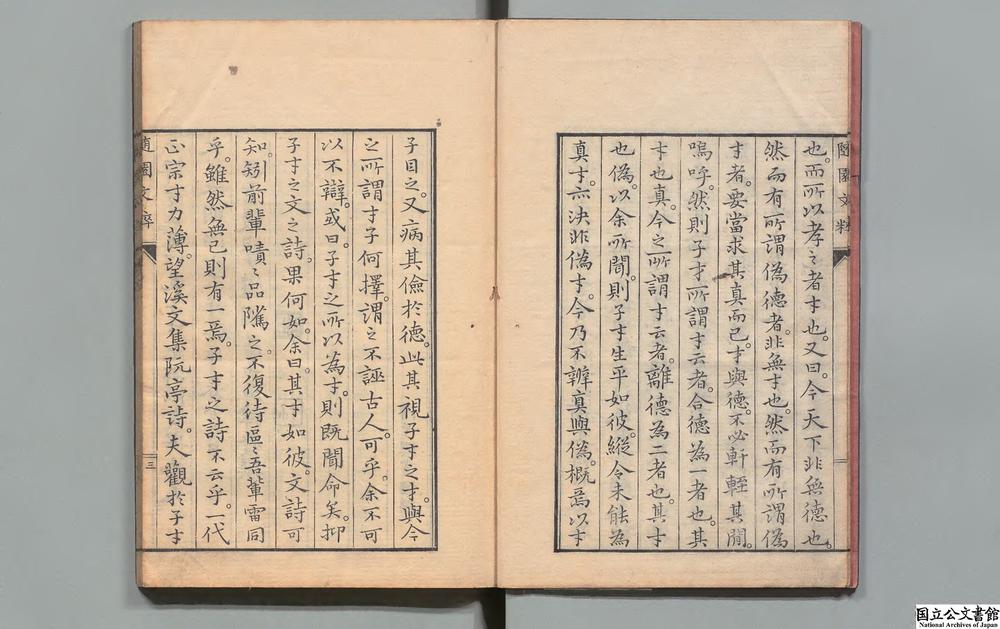 隨園文粹
也。而所以孝々者才也。又曰。今天下非無德也。
然而有所謂偽德者。非無才也。然而有所謂偽
才者。要當求其真而已。才與德。不必軒輊其間。
嗚呼。然則子才所謂才云者。合德為一者也。其
才也真。今之所謂才云者。離德為二者也。其才
也偽。以余所聞。則子才生平如彼。縱令未能為
真才。亦決非偽才。今乃不辨真與偽。概焉以才
子目之。又病其儉於德。此其視子才之才。與今
之所謂才子何擇。謂之不誣古人。可乎。余不可
以不辯。或曰。子才之所以為才。則既聞命矣。抑
子才之文之詩。果何如。余曰。其才如彼。文詩可
知。矧前輩嘖々品隲之。不復待區々吾輩雷同
乎。雖然無已則有一焉。子才之詩不云乎。一代
正宗才力薄。望溪文集阮亭詩。夫觀於子才
隨園文粹
三
国立公文書館
National Archives of Japan